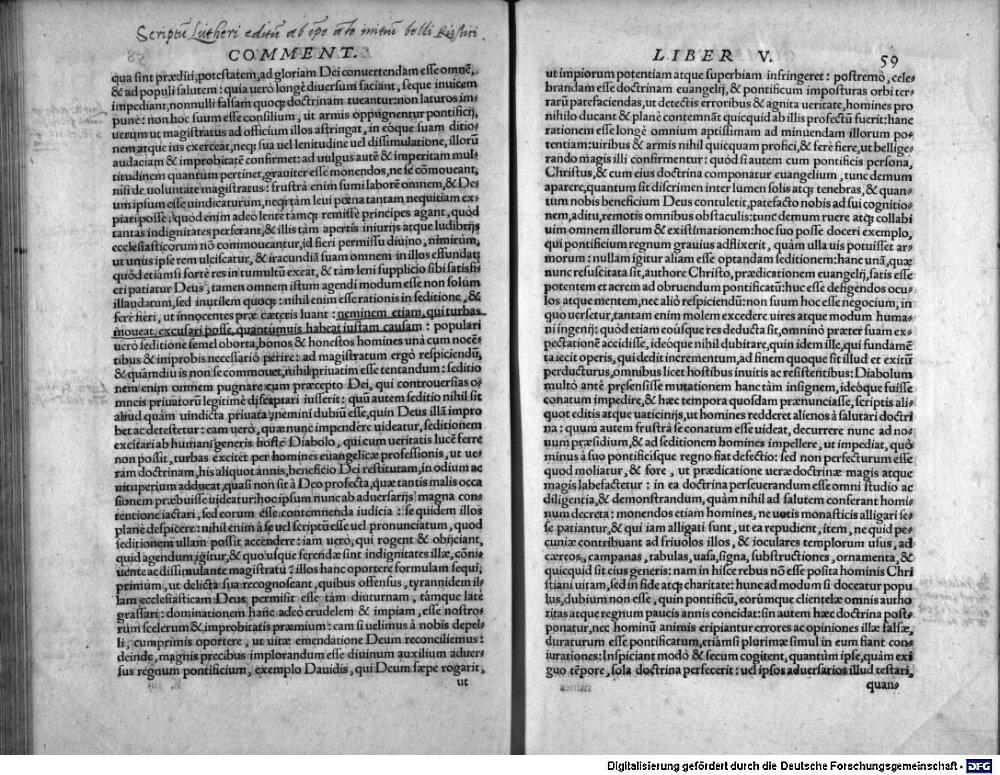 Scriptũ Lutheri editũ ab ipo añ initiũ belli Rustici
COMMENT.
qua sint præditi, potestatem, ad gloriam Dei conuertendam esse omnẽ,
& ad populi salutem: quia uerò longè diuersum faciant, seque inuicem
impediant, nonnulli falsam quoqɜ doctrinam tueantur: non laturos im-
punè: non hoc suum esse consilium, ut armis oppugnentur pontificij,
uerum ut magistratus ad officium illos astringat, in eóque suam ditio-
nem atque ius exerceat, neqɜ sua uel lenitudine uel dissimulatione, illorũ
audaciam & improbitatẽ confirmet: ad uulgus autẽ & imperitam mul-
titudinem quantum pertinet, grauiter esse monendos, ne se cõmoueant,
nisi de uoluntate magistratus: frustrà enim sumi laborẽ omnem, & De-
um ipsum esse uindicaturum, neqɜ tàm leui pœna tantam nequitiam ex-
piari posse: quòd enim adeò lentè tàmqɜ remissè principes agant, quòd
tantas indignitates perferant, & illis tàm apertis iniurijs atque ludibrijs
ecclesiasticorum nõ commoueantur, id fieri permissu diuino, nimirùm,
ut unus ipse rem ulciscatur, & iracundiã suam omnem in illos effundat:
quòd etiamsi fortè res in tumultũ exeat, & tàm leni supplicio sibi satisfi-
eri patiatur Deus, tamen omnem istum agendi modum esse non solùm
illaudatum, sed inutilem quoqɜ: nihil enim esse rationis in seditione, &
ferè fieri, ut innocentes præ cæteris luant: neminem etiam, qui turbas
moueat, excusari posse, quantumuis habeat iustam causam: populari
uerò seditione semel oborta, bonos & honestos homines unà cum nocẽ-
tibus & improbis necessariò perire: ad magistratum ergò respiciendũ,
& quàmdiu is non se commouet, nihil priuatim esse tentandum: seditio
nem enim omnem pugnare cum præcepto Dei, qui controuersias o-
mneis priuatorũ legitimè disceptari iusserit: quũ autem seditio nihil sit
aliud quàm uindicta priuata, nemini dubiũ esse, quin Deus illã impro
bet ac detestetur: eam uerò, quæ nunc impendere uideatur, seditionem
excitari ab humani generis hoste Diabolo, qui cum ueritatis lucẽ ferre
non possit, turbas excitet per homines euangelicæ professionis, ut ue-
ram doctrinam, his aliquot annis, beneficio Dei restitutam, in odium ac
uituperium adducat, quasi non sit à Deo profecta, quæ tantis malis occa
sionem præbuisse uideatur: hoc ipsum nunc ab aduersarijs magna con-
tentione iactari, sed eorum esse contemnenda iudicia: se quidem illos
planè despicere: nihil enim à se uel scriptũ esse uel pronunciatum, quod
seditionem ullam possit accendere: iam uerò, qui rogent & obijciant,
quid agendum igitur, & quoúsque ferendæ sint indignitates illæ, cõni-
uente ac dissimulante magistratu? illos hanc oportere formulam sequi:
primùm, ut delicta sua recognoscant, quibus offensus, tyrannidem il-
lam ecclesiasticam Deus permisit esse tàm diuturnam, támque latè
grassari: dominationem hanc adeò crudelem & impiam, esse nostro-
rũm scelerum & improbitatis præmium: eam si uelimus à nobis depel-
li, cumprimis oportere, ut uitæ emendatione Deum reconciliemus:
deinde, magnis precibus implorandum esse diuinum auxilium aduer-
sus regnum pontificium, exemplo Dauidis, qui Deum sæpe rogarit,
ut
LIBER V.
59
ut impiorum potentiam atque superbiam infringeret: postremò, cele-
brandam esse doctrinam euangelij, & pontificum imposturas orbi ter-
rarũ patefaciendas, ut detectis erroribus & agnita ueritate, homines pro
nihilo ducant & planè contemnãt quicquid ab illis profectũ fuerit: hanc
rationem esse longè omnium aptissimam ad minuendam illorum po-
tentiam: uiribus & armis nihil quicquam profici, & ferè fieri, ut bellige-
rando magis illi confirmentur: quòd si autem cum pontificis persona,
Christus, & cum eius doctrina componatur euangelium, tunc demum
aparere, quantum sit discrimen inter lumen solis atqɜ tenebras, & quan-
tum nobis beneficium Deus contulerit, patefacto nobis ad sui cognitio-
nem, aditu, remotis omnibus obstaculis: tunc demum ruere atqɜ collabi
uim omnem illorum & existimationem: hoc suo posse doceri exemplo,
qui pontificium regnum grauius adflixerit, quàm ulla uis potuisset ar-
morum: nullam igitur aliam esse optandam seditionem: hanc unã, quæ
nunc resuscitata sit, authore Christo, prædicationem euangelij, satis esse
potentem et acrem ad obruendum pontificatũ: huc esse defigendos ocu-
los atque mentem, nec aliò respiciendũ: non suum hoc esse negocium, in
quo uersetur, tantam enim molem excedere uires atque modum huma-
ni ingenij: quòd etiam eoúsque res deducta sit, omninò præter suam ex-
pectationẽ accidisse, ideóque nihil dubitare, quin idem ille, qui fundamẽ
ta iecit operis, qui dedit incrementum, ad finem quoque sit illud et exitũ
perducturus, omnibus licet hostibus inuitis ac resistentibus: Diabolum
multò antè præsensisse mutationem hanc tàm insignem, ideóque fuisse
conatum impedire, & hæc tempora quosdam prænunciasse, scriptis ali-
quot editis atque uaticinijs, ut homines redderet alienos à salutari doctri
na: quum autem frustrà se conatum esse uideat, decurrere nunc ad no-
uum præsidium, & ad seditionem homines impellere, ut impediat, quò
minùs à suo pontificisque regno fiat defectio: sed non perfecturum esse
quod moliatur, & fore, ut prædicatione ueræ doctrinæ magis atque
magis labefactetur: in ea doctrina perseuerandum esse omni studio ac
diligentia, & demonstrandum, quàm nihil ad salutem conferant homi-
num decreta: monendos etiam homines, ne uotis monasticis alligari se-
se patiantur, & qui iam alligati sunt, ut ea repudient, item, ne quid pe-
cuniæ contribuant ad friuolos illos, & ioculares templorum usus, ad
cæreos, campanas, tabulas, uasa, signa, substructiones, ornamenta, &
quicquid sit eius generis: nam in hisce rebus nõ esse posita hominis Chri
stiani uitam, sed in fide atqɜ charitate: hunc ad modum si doceatur popu
lus, dubium non esse, quin pontificũ, eorúmque clientelæ omnis autho
ritas atque regnum paucis annis concidat: sin autem hæc doctrina post-
ponatur, nec hominũ animis eripiantur errores ac opiniones illæ falsæ,
duraturum esse pontificatum, etiamsi plurimæ simul in eum fiant con-
iurationes: Inspiciant modò & secum cogitent, quantùm ipse, quàm exi
guo tẽpore, sola doctrina perfecerit: uel ipsos aduersarios illud testari,
quan-
Digitalisierung gefördert durch die Deutsche Forschungsgemeinschaft - DFG